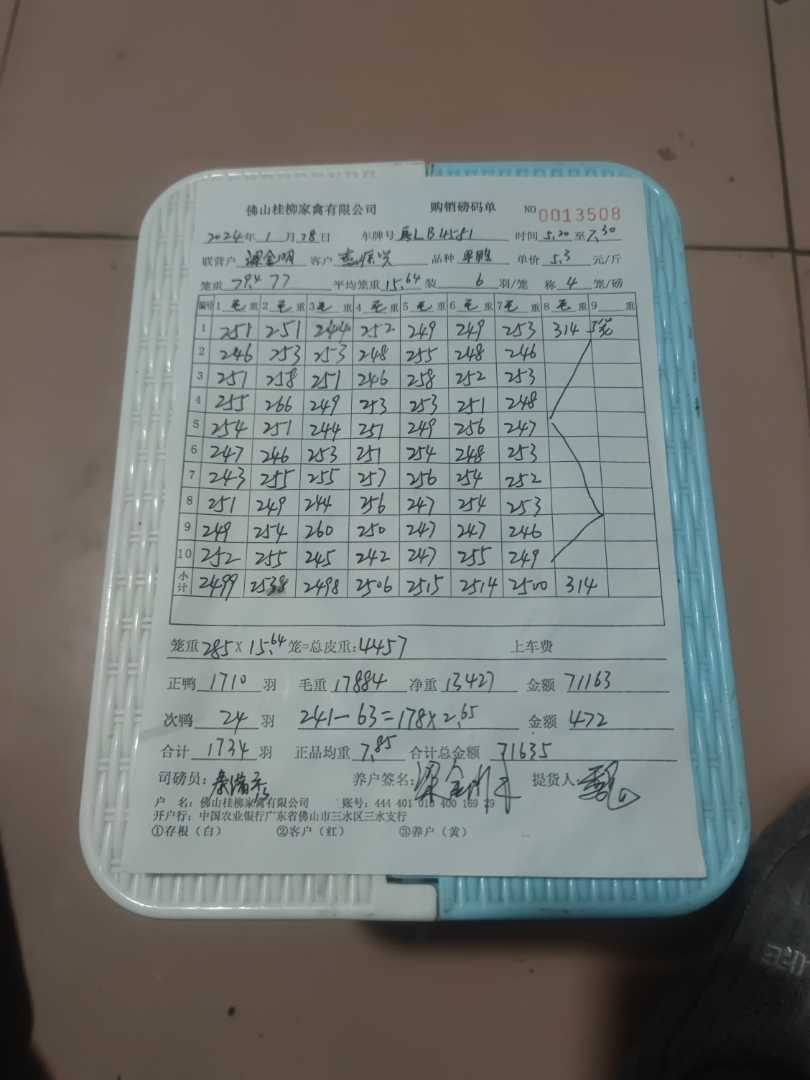 佛山桂柳家禽有限公司 购销磅码单 NO 0013508
2024年 1 月 28 日 车牌号 LB4581 时间 5.30 至 7.30
联营户 梁金明 客户 品种 单价 5.3 元/斤
笼重 79.4 77 平均笼重 15.64 装 6 羽/笼 称 4 笼/磅
编号 1 毛 重 2 毛 重 3 毛 重 4 毛 重 5 毛 重 6 毛 重 7 毛 重 8 毛 重 9 重
1 251 251 244 252 249 249 253 314 5笼
2 246 253 253 248 255 248 246
3 251 258 251 246 258 252 253
4 255 266 249 253 253 251 248
5 254 251 244 251 249 256 247
6 247 246 253 251 254 248 253
7 243 255 255 257 256 254 252
8 251 249 244 256 247 254 253
9 249 254 260 250 247 247 246
10 252 255 245 242 247 255 249
小计 2499 2538 2498 2506 2515 2514 2500 314
笼重 285 × 15.64 笼=总皮重: 4457 上车费
正鸭 1710 羽 毛重 17884 净重 13427 金额 71163
次鸭 24 羽 241-63=178×2.65 金额 472
合计 1734 羽 正品均重 7.85 合计总金额 71635
司磅员: 养户签名: 梁金明 提货人:
户 名: 佛山桂柳家禽有限公司 账号: 444 401 010 400 169 29
开户行: 中国农业银行广东省佛山市三水区三水支行
①存根（白） ②客户（红） ③养户（黄）